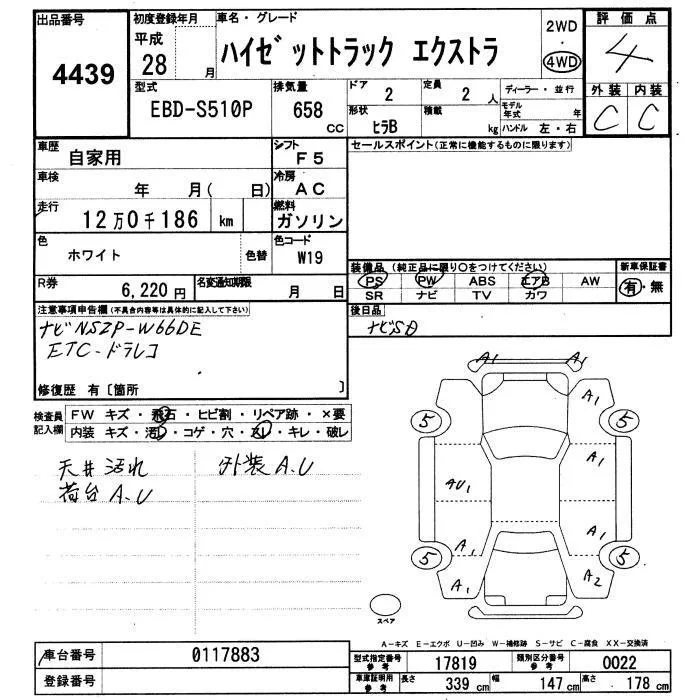 出品番号 4439
初度登録年月 平成 28 月
車名・グレード ハイゼットトラック エクストラ
2WD ・ 4WD
評価点 4
外装 内装 C C
型式 EBD-S510P
排気量 658 CC
ドア 2
定員 2 人
形状 ヒラB
積載 kg
ディーラー・並行
モデル年式 年
ハンドル 左・右
車歴 自家用
シフト F5
セールスポイント(正常に機能するものに限ります)
車検 年 月( 日)
冷房 AC
走行 12万0千186 km
燃料 ガソリン
色 ホワイト 色替
色コード W19
R券 6,220円
名変通知期限 月 日
装備品(純正品に限り○をつけてください)
新車保証書 有・無
PS PW ABS エアB AW
SR ナビ TV カワ
後日品 ナビSD
注意事項申告欄(不具合内容等は具体的に記入して下さい)
ナビ NSZP-W66DE
ETC-ドラレコ
修復歴 有〔箇所 〕
検査員記入欄
FW キズ・飛石・ヒビ割・リペア跡・×要
内装 キズ・汚レ・コゲ・穴・スレ・キレ・破レ
天井汚れ 外装A.U
荷台A.U
A1 A1
A1
5 5
A1
AU1
A1
A1
5 5
A1 A2
スペア
A-キズ E-エクボ U-凹み W-補修跡 S-サビ C-腐食 XX-交換済
車台番号 0117883
型式指定番号参考 17819
類別区分番号参考 0022
登録番号
車庫証明用参考 長さ 339 cm 幅 147 cm 高さ 178 cm